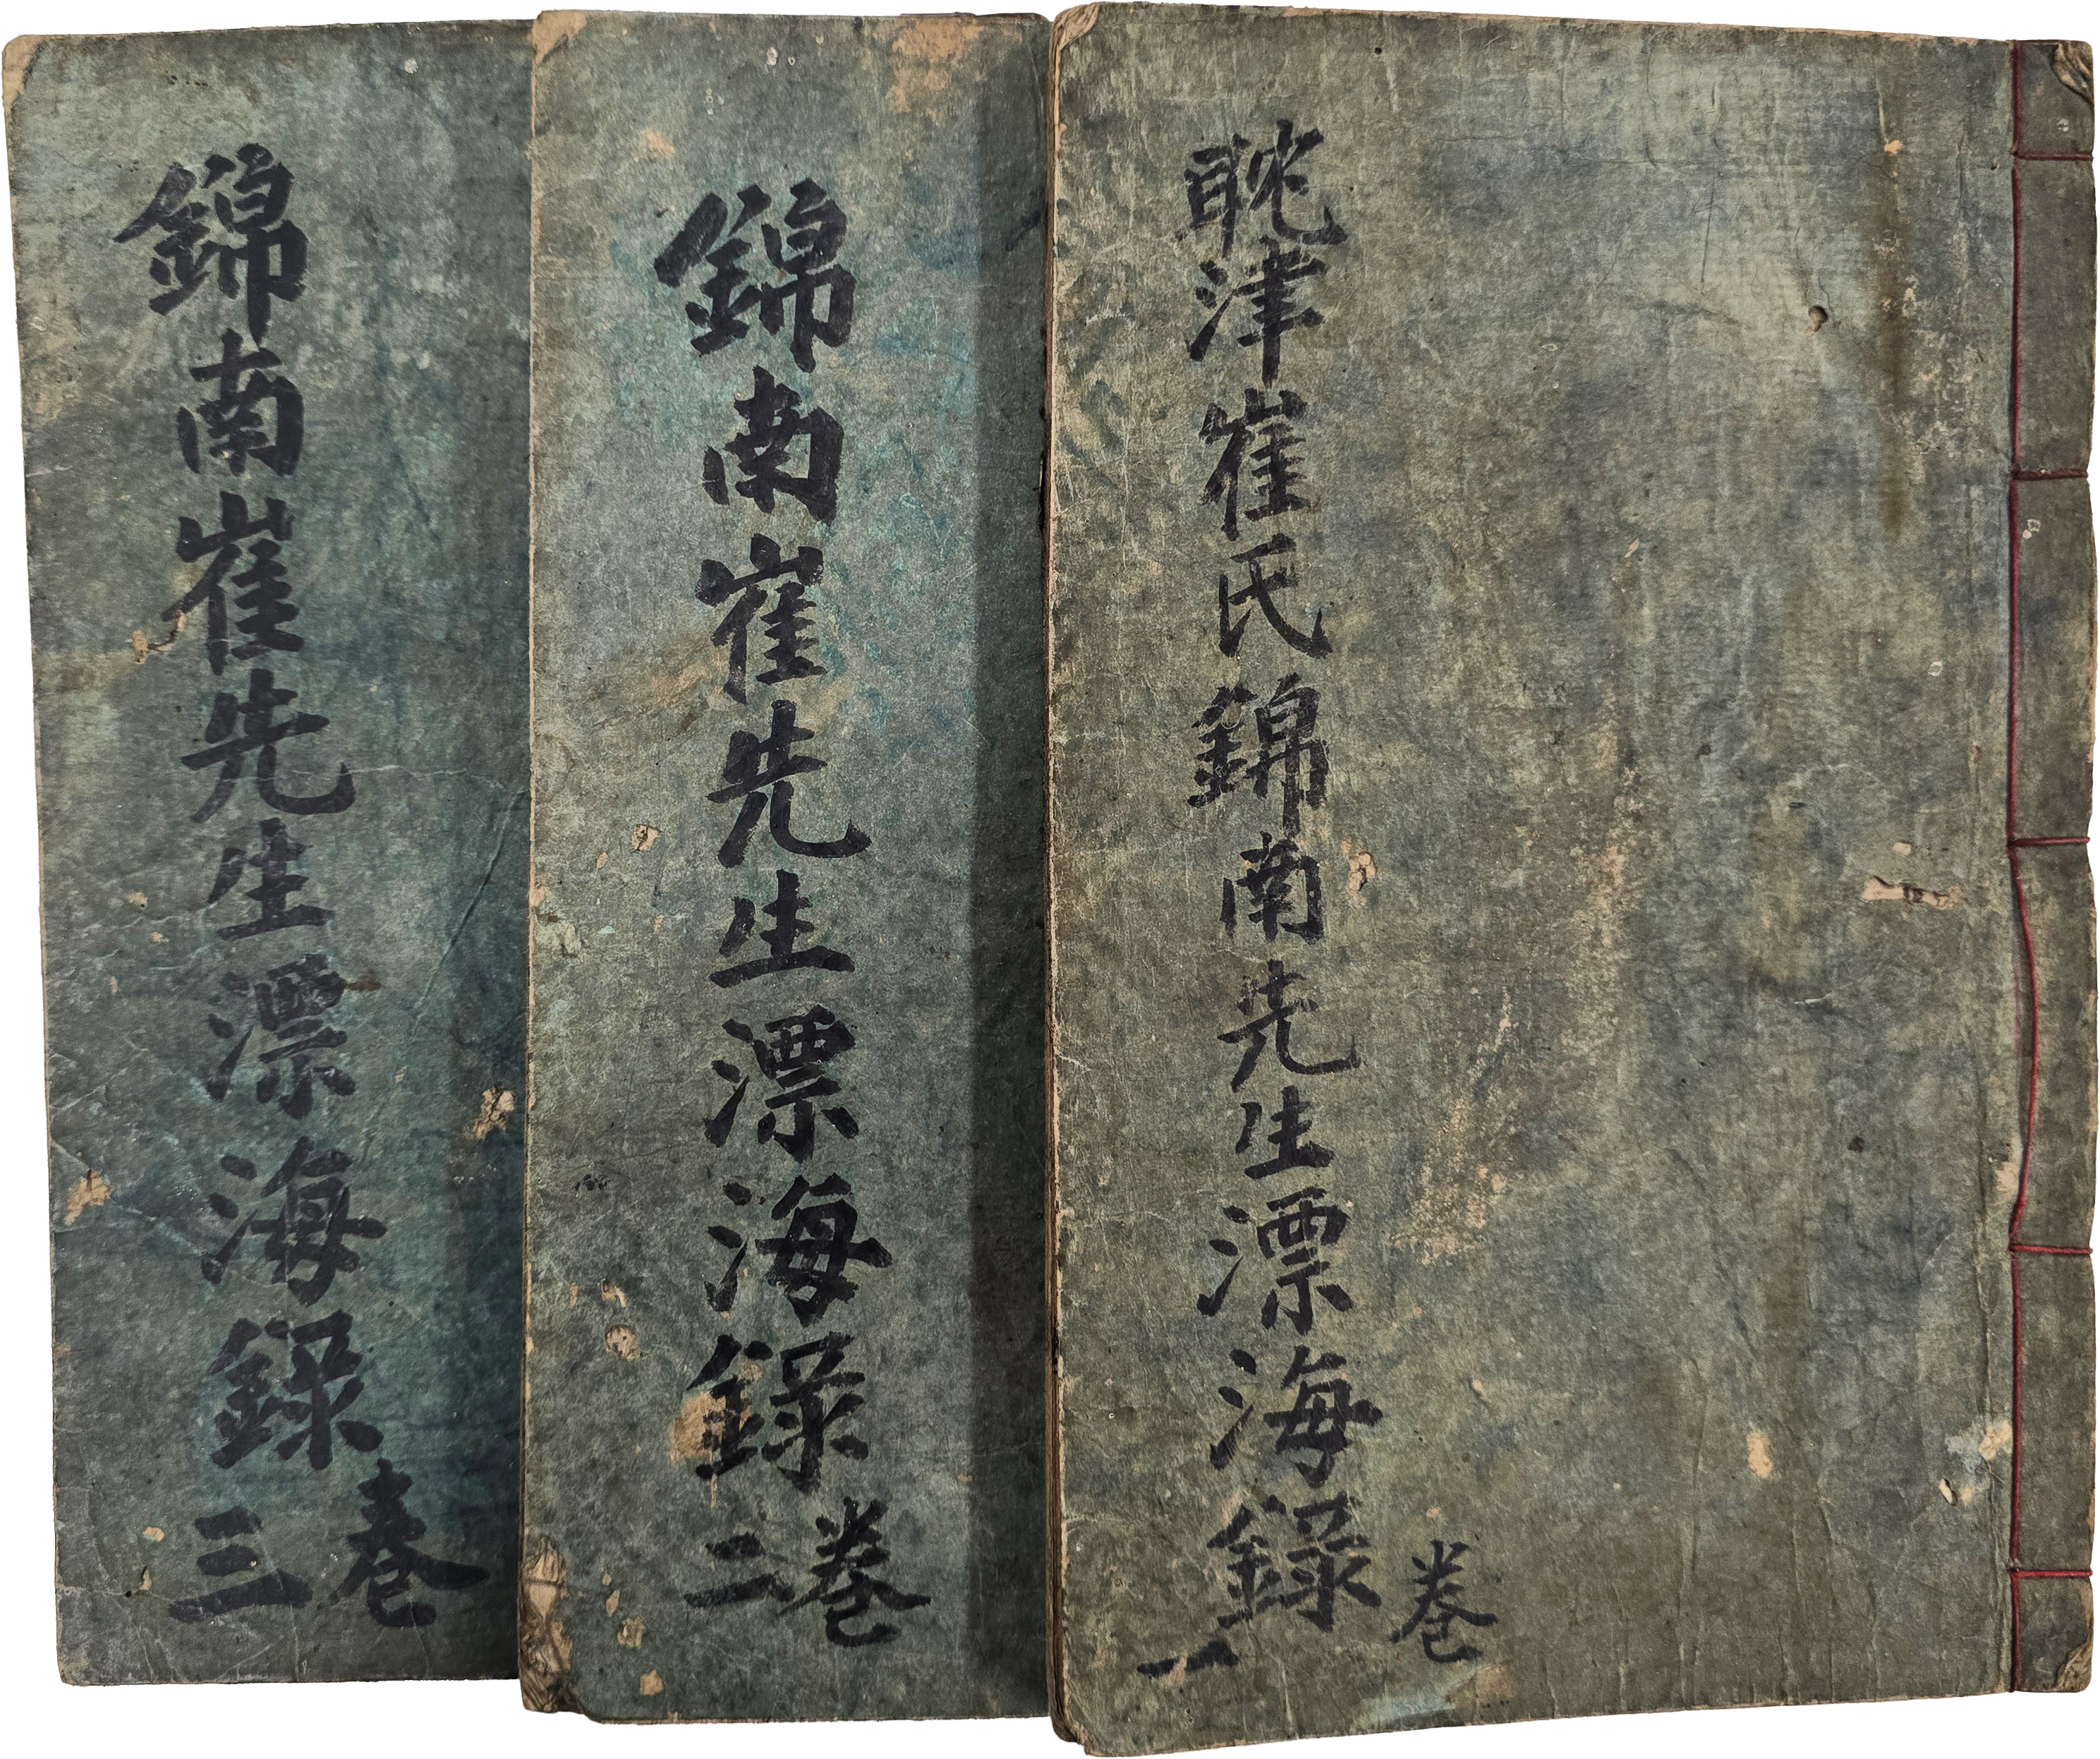 耽津崔氏錦南先生漂海録
卷一
錦南崔先生漂海録
卷二
錦南崔先生漂海録
卷三